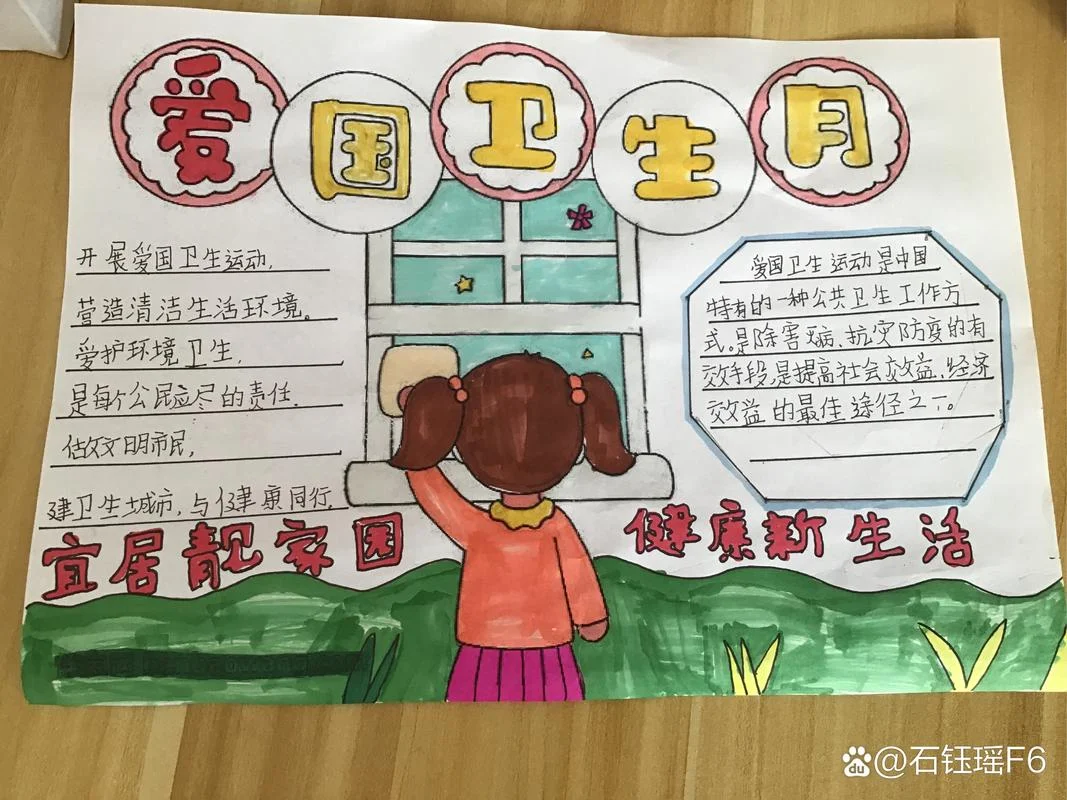 爱国卫生月
开展爱国卫生运动,
营造清洁生活环境。
爱护环境卫生,
是每个公民应尽的责任.
估文文明市民,
建卫生城市,与健康同行.
爱国卫生运动是中国
特有的一种公共卫生工作方
式。是除害灭病、抗灾防疫的有
效手段,是提高社会效益、经济
效益的最佳途径之一。
宜居靓家园
健康新生活
@石钰瑶F6